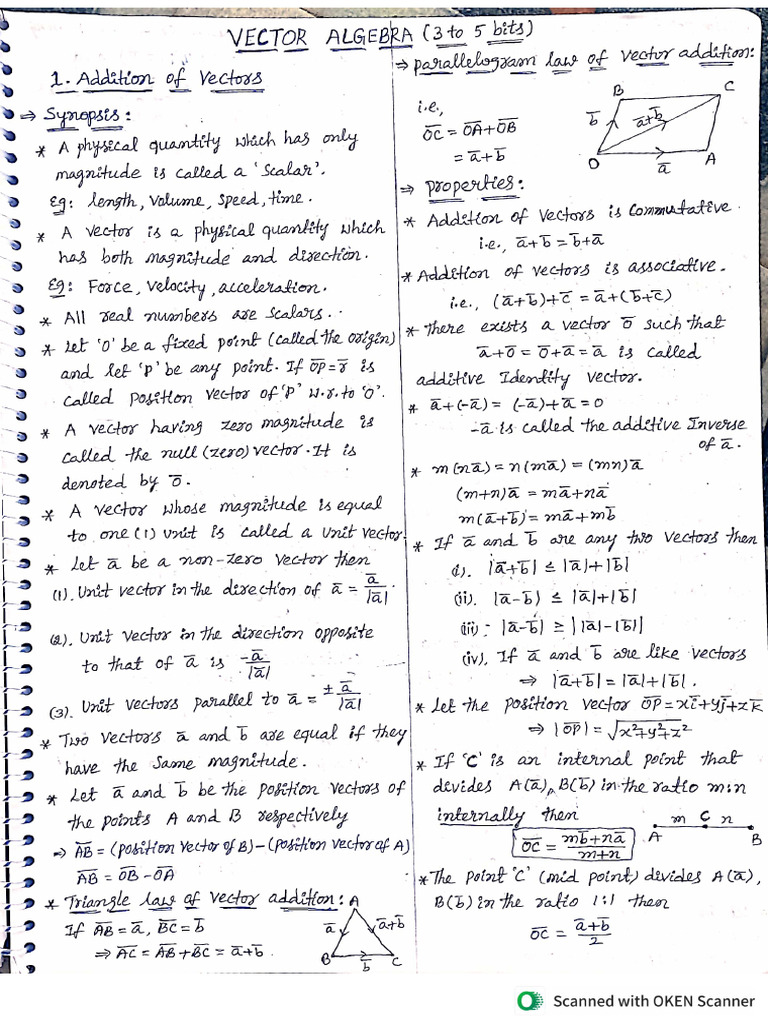 VECTOR ALGEBRA (3 to 5 bits)
1. Addition of Vectors
⇒ Synopsis:
* A physical quantity which has only
magnitude is called a 'Scalar'.
Eg: length, volume, speed, time.
* A vector is a physical quantity which
has both magnitude and direction.
Eg: Force, velocity, acceleration.
* All real numbers are scalars.
* Let 'O' be a fixed point (called the origin)
and let 'P' be any point. If O̅P̅ = r̅ is
called position vector of 'P' w.r.to 'O'.
* A vector having zero magnitude is
called the null (zero) vector. It is
denoted by o̅.
* A vector whose magnitude is equal
to one (1) unit is called a unit vector.
* Let a̅ be a non-zero vector then
(1). Unit vector in the direction of a̅ = a̅/|a̅|.
(2). Unit vector in the direction opposite
to that of a̅ is -a̅/|a̅|
(3). Unit vectors parallel to a̅ = ±a̅/|a̅|
* Two vectors a̅ and b̅ are equal if they
have the same magnitude.
* Let a̅ and b̅ be the position vectors of
the points A and B respectively
⇒ A̅B̅ = (position vector of B) - (position vector of A)
A̅B̅ = O̅B̅ - O̅A̅
* Triangle law of vector addition:
If A̅B̅ = a̅, B̅C̅ = b̅
⇒ A̅C̅ = A̅B̅ + B̅C̅ = a̅ + b̅.
A
a̅ a̅+b̅
B b̅ C
⇒ parallelogram law of vector addition:
i.e,
O̅C̅ = O̅A̅ + O̅B̅
= a̅ + b̅
B C
b̅ a̅+b̅
O a̅ A
⇒ properties:
* Addition of vectors is commutative.
i.e., a̅ + b̅ = b̅ + a̅
* Addition of vectors is associative.
i.e., (a̅+b̅)+c̅ = a̅+(b̅+c̅)
* There exists a vector o̅ such that
a̅+o̅ = o̅+a̅ = a̅ is called
additive Identity vector.
* a̅+(-a̅) = (-a̅)+a̅ = 0
-a̅ is called the additive Inverse
of a̅.
* m(na̅) = n(ma̅) = (mn)a̅
(m+n)a̅ = ma̅+na̅
m(a̅+b̅) = ma̅+mb̅
* If a̅ and b̅ are any two vectors then
(i). |a̅+b̅| ≤ |a̅|+|b̅|
(ii). |a̅-b̅| ≤ |a̅|+|b̅|
(iii). |a̅-b̅| ≥ ||a̅|-|b̅||
(iv). If a̅ and b̅ are like vectors
⇒ |a̅+b̅| = |a̅|+|b̅|.
* Let the position vector O̅P̅ = xi̅+yj̅+zk̅
⇒ |O̅P̅| = √x²+y²+z²
* If 'C' is an internal point that
divides A(a̅), B(b̅) in the ratio m:n
internally then
O̅C̅ = mb̅+na̅/m+n
m C n
A B
* The point 'C' (mid point) divides A(a̅),
B(b̅) in the ratio 1:1 then
O̅C̅ = a̅+b̅/2
Scanned with OKEN Scanner